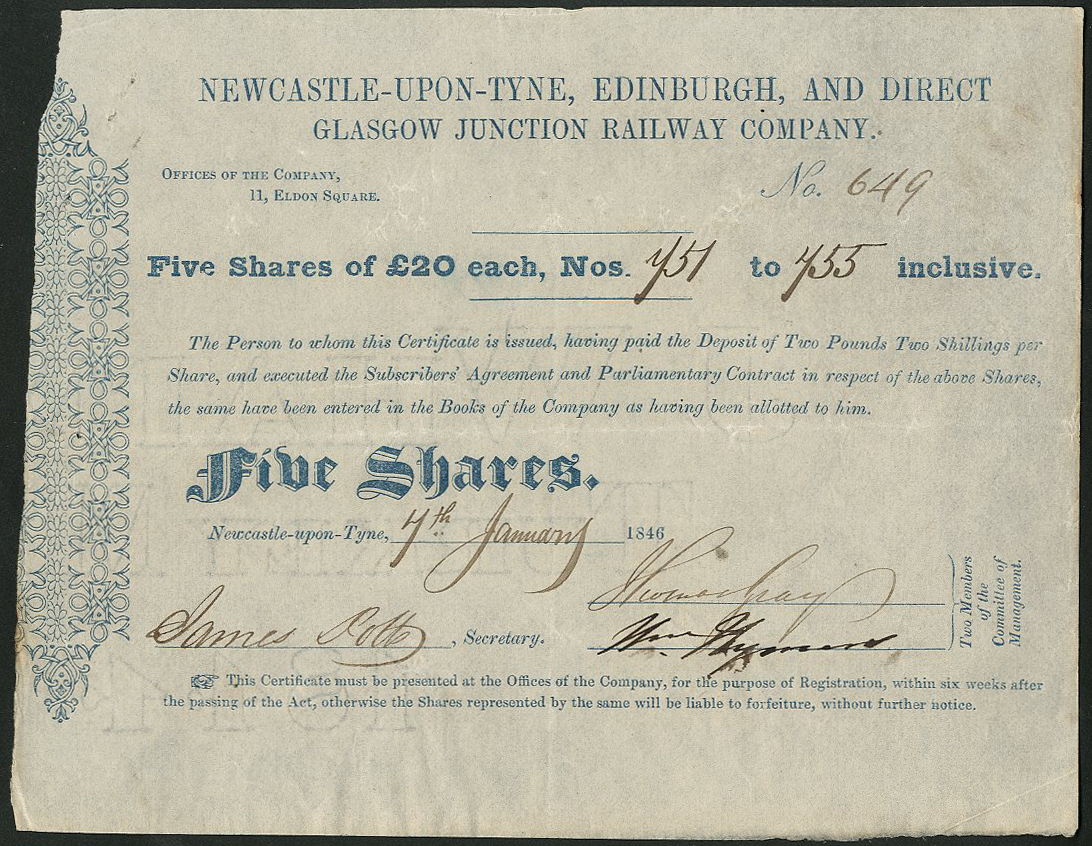 NEWCASTLE-UPON-TYNE, EDINBURGH, AND DIRECT
GLASGOW JUNCTION RAILWAY COMPANY.
OFFICES OF THE COMPANY,
11, ELDON SQUARE.
No. 649
Five Shares of £20 each, Nos. 751 to 755 inclusive.
The Person to whom this Certificate is issued, having paid the Deposit of Two Pounds Two Shillings per
Share, and executed the Subscribers' Agreement and Parliamentary Contract in respect of the above Shares,
the same have been entered in the Books of the Company as having been allotted to him.
Five Shares.
Newcastle-upon-Tyne, 7th January 1846
Thomas Gray
James Potts, Secretary.
Wm.
Two Members
of the
Committee of
Management.
☞ This Certificate must be presented at the Offices of the Company, for the purpose of Registration, within six weeks after
the passing of the Act, otherwise the Shares represented by the same will be liable to forfeiture, without further notice.